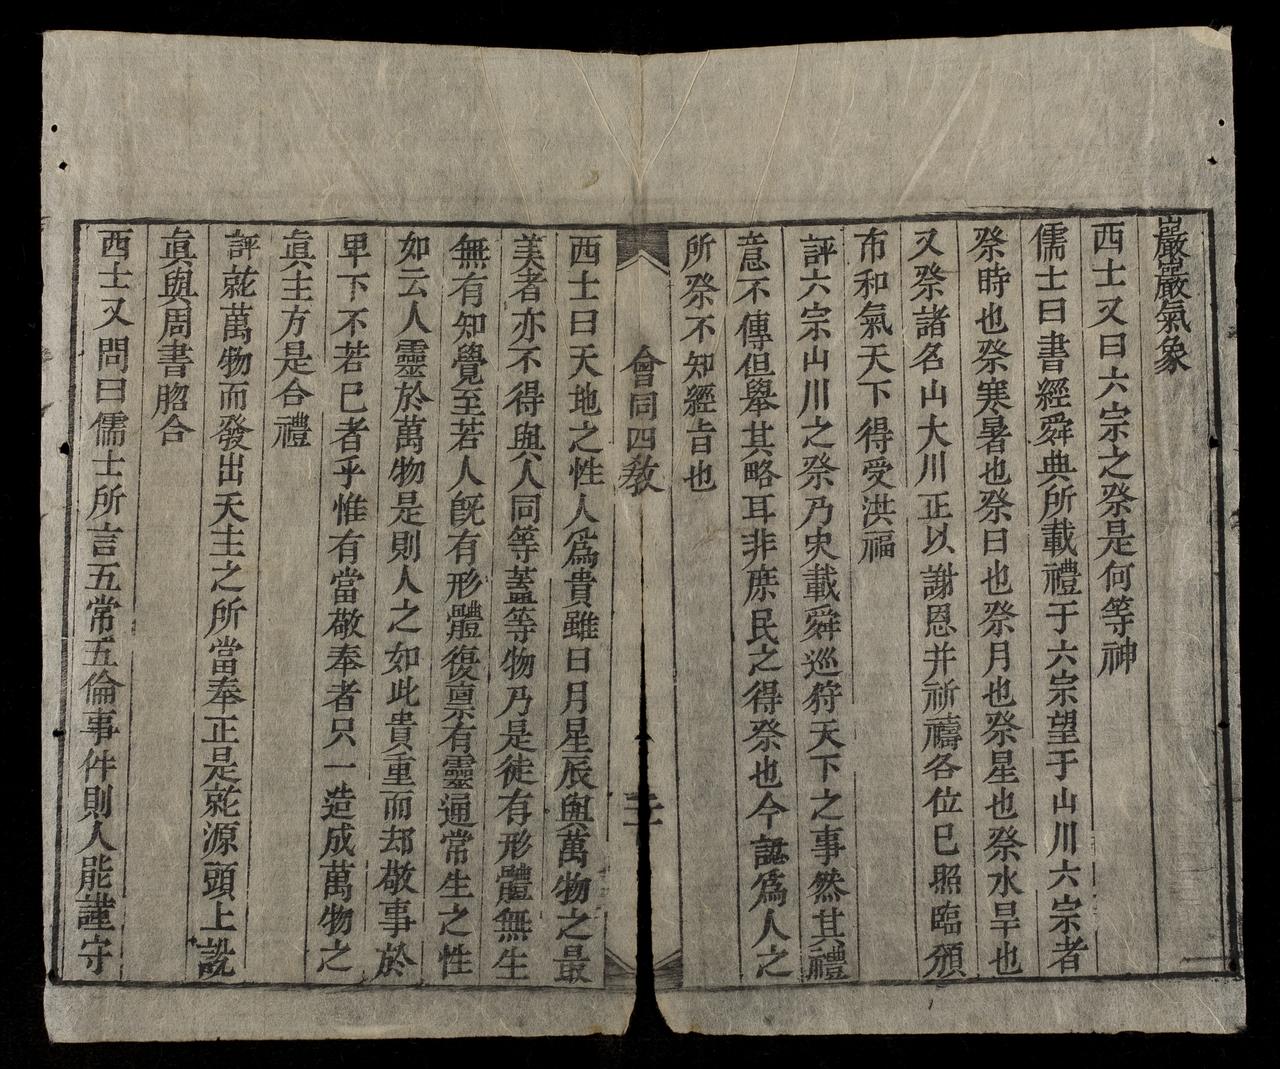 巖巖氣象
西士又曰六宗之祭是何等神
儒士曰書經舜典所載禮于六宗望于山川六宗者
祭時也祭寒暑也祭日也祭月也祭星也祭水旱也
又祭諸名山大川正以謝恩并祈禱各位已照臨頒
布和氣天下得受洪福
評六宗山川之祭乃史載舜巡狩天下之事然其禮
意不傳但舉其略耳非庶民之得祭也今認爲人之
所祭不知經旨也
會同四教
西士曰天地之性人爲貴雖日月星辰與萬物之最
美者亦不得與人同等蓋等物乃是徒有形體無生
無有知覺至若人旣有形體復禀有靈通常生之性
如云人靈於萬物是則人之如此貴重而却敬事於
卑下不若已者乎惟有當敬奉者只一造成萬物之
眞主方是合禮
評就萬物而發出天主之所當奉正是就源頭上說
眞與周書脗合
西士又問曰儒士所言五常五倫事件則人能謹守